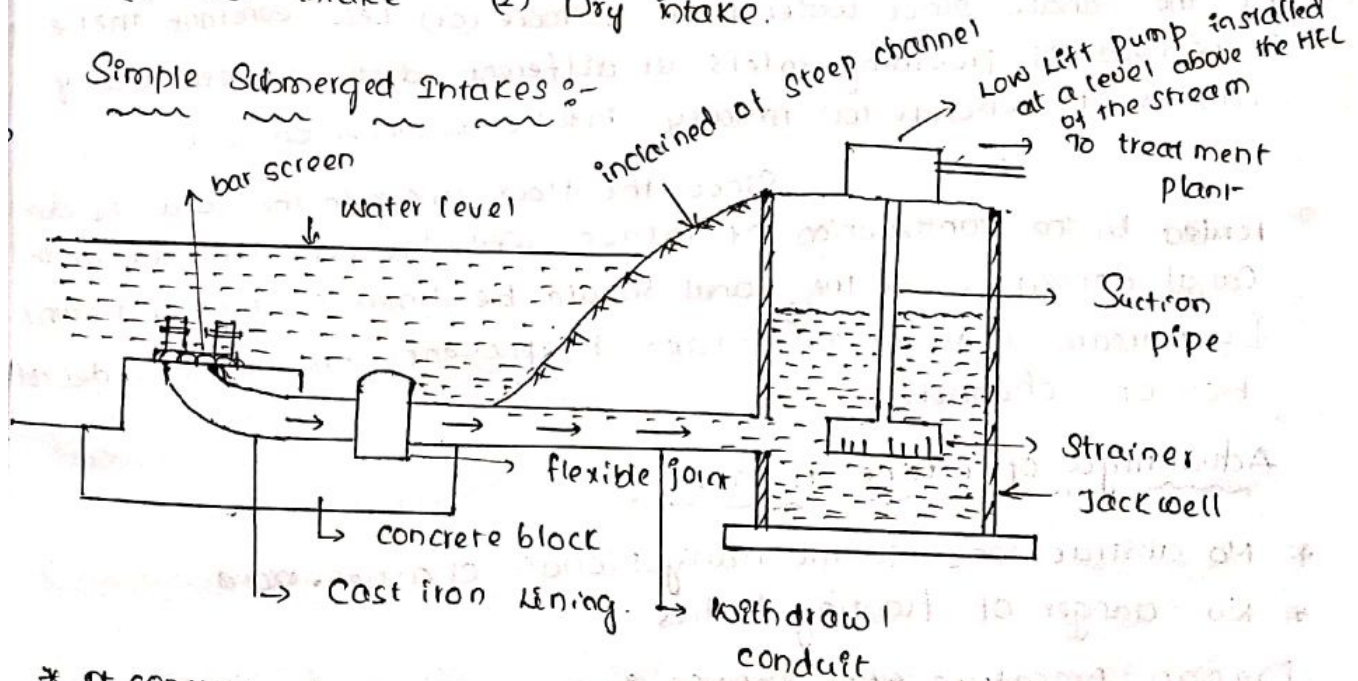 (2) Dry intake.
Simple Submerged Intakes :-
bar screen
water level
inclained of steep channel
Low Lift pump installed
at a level above the HFL
of the stream
To treatment
plant
Suction
pipe
Strainer
Jackwell
flexible joint
concrete block
Cast iron Lining.
withdrawl
conduit